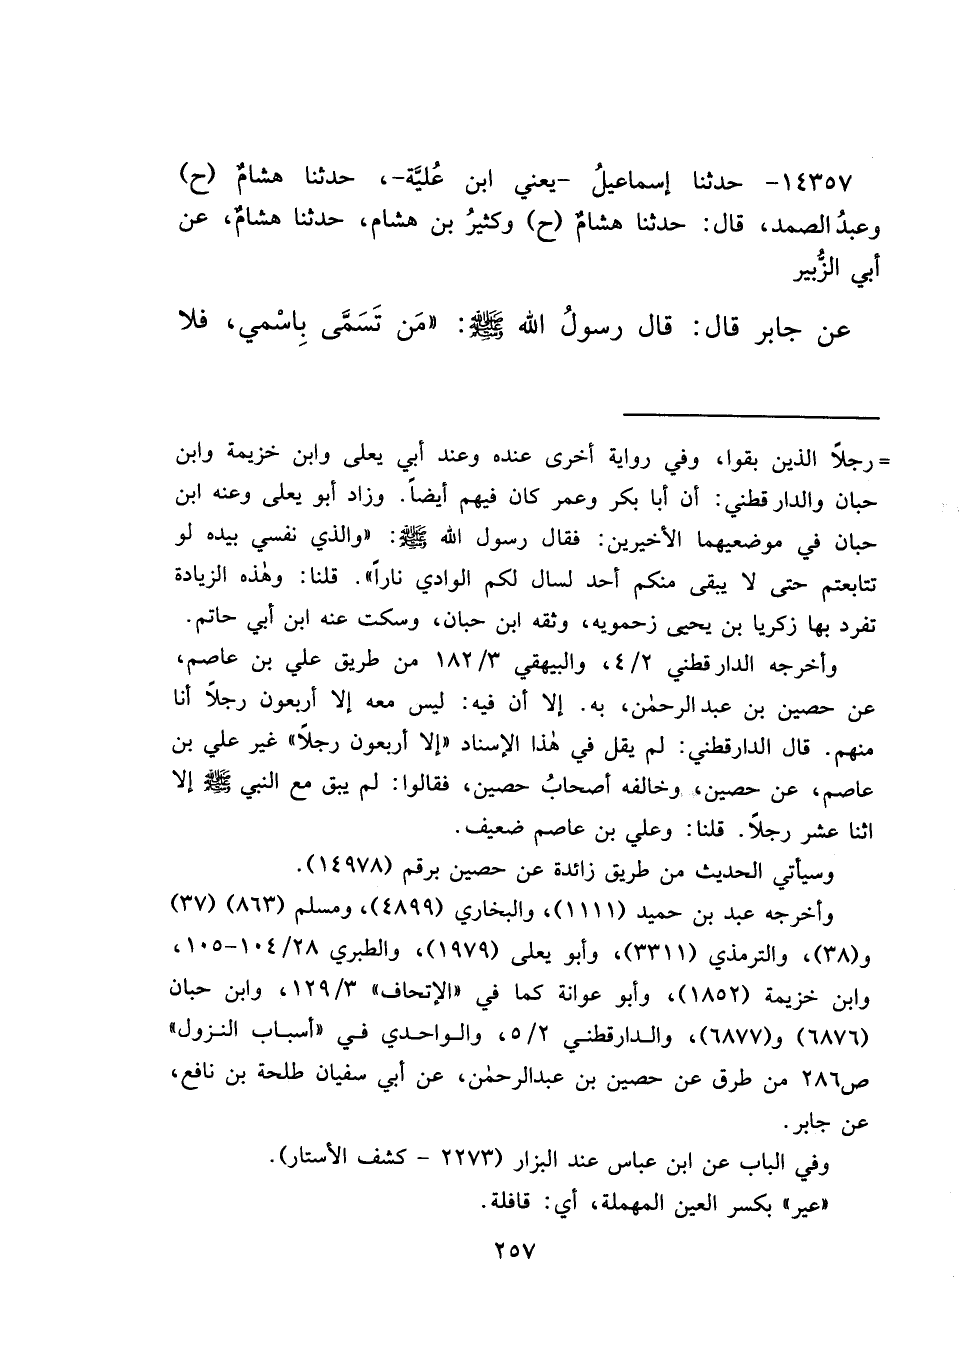 ١٤٣٥٧- حدثنا إسماعيلُ -يعني ابن عُليَّة-، حدثنا هشامٌ (ح)
وعبدُ الصمد، قال: حدثنا هشامٌ (ح) وكثيرُ بن هشام، حدثنا هشامٌ، عن
أبي الزُّبير
عن جابر قال: قال رسولُ الله ﷺ: «مَن تَسَمَّى بِاسْمي، فلا
= رجلاً الذين بقوا، وفي رواية أخرى عنده وعند أبي يعلى وابن خزيمة وابن
حبان والدارقطني: أن أبا بكر وعمر كان فيهم أيضاً. وزاد أبو يعلى وعنه ابن
حبان في موضعيهما الأخيرين: فقال رسول الله ﷺ: «والذي نفسي بيده لو
تتابعتم حتى لا يبقى منكم أحد لسال لكم الوادي ناراً». قلنا: وهٰذه الزيادة
تفرد بها زكريا بن يحيى زحمويه، وثقه ابن حبان، وسكت عنه ابن أبي حاتم.
وأخرجه الدارقطني ٤/٢، والبيهقي ١٨٢/٣ من طريق علي بن عاصم،
عن حصين بن عبدالرحمٰن، به. إلا أن فيه: ليس معه إلا أربعون رجلاً أنا
منهم. قال الدارقطني: لم يقل في هٰذا الإسناد «إلا أربعون رجلاً» غير علي بن
عاصم، عن حصين، وخالفه أصحابُ حصين، فقالوا: لم يبق مع النبي ﷺ إلا
اثنا عشر رجلاً. قلنا: وعلي بن عاصم ضعيف.
وسيأتي الحديث من طريق زائدة عن حصين برقم (١٤٩٧٨).
وأخرجه عبد بن حميد (١١١١)، والبخاري (٤٨٩٩)، ومسلم (٨٦٣) (٣٧)
و(٣٨)، والترمذي (٣٣١١)، وأبو يعلى (١٩٧٩)، والطبري ١٠٤/٢٨-١٠٥،
وابن خزيمة (١٨٥٢)، وأبو عوانة كما في «الإتحاف» ١٢٩/٣، وابن حبان
(٦٨٧٦) و(٦٨٧٧)، والدارقطني ٥/٢، والواحدي في «أسباب النزول»
ص٢٨٦ من طرق عن حصين بن عبدالرحمٰن، عن أبي سفيان طلحة بن نافع،
عن جابر.
وفي الباب عن ابن عباس عند البزار (٢٢٧٣ - كشف الأستار).
«عير» بكسر العين المهملة، أي: قافلة.
٢٥٧